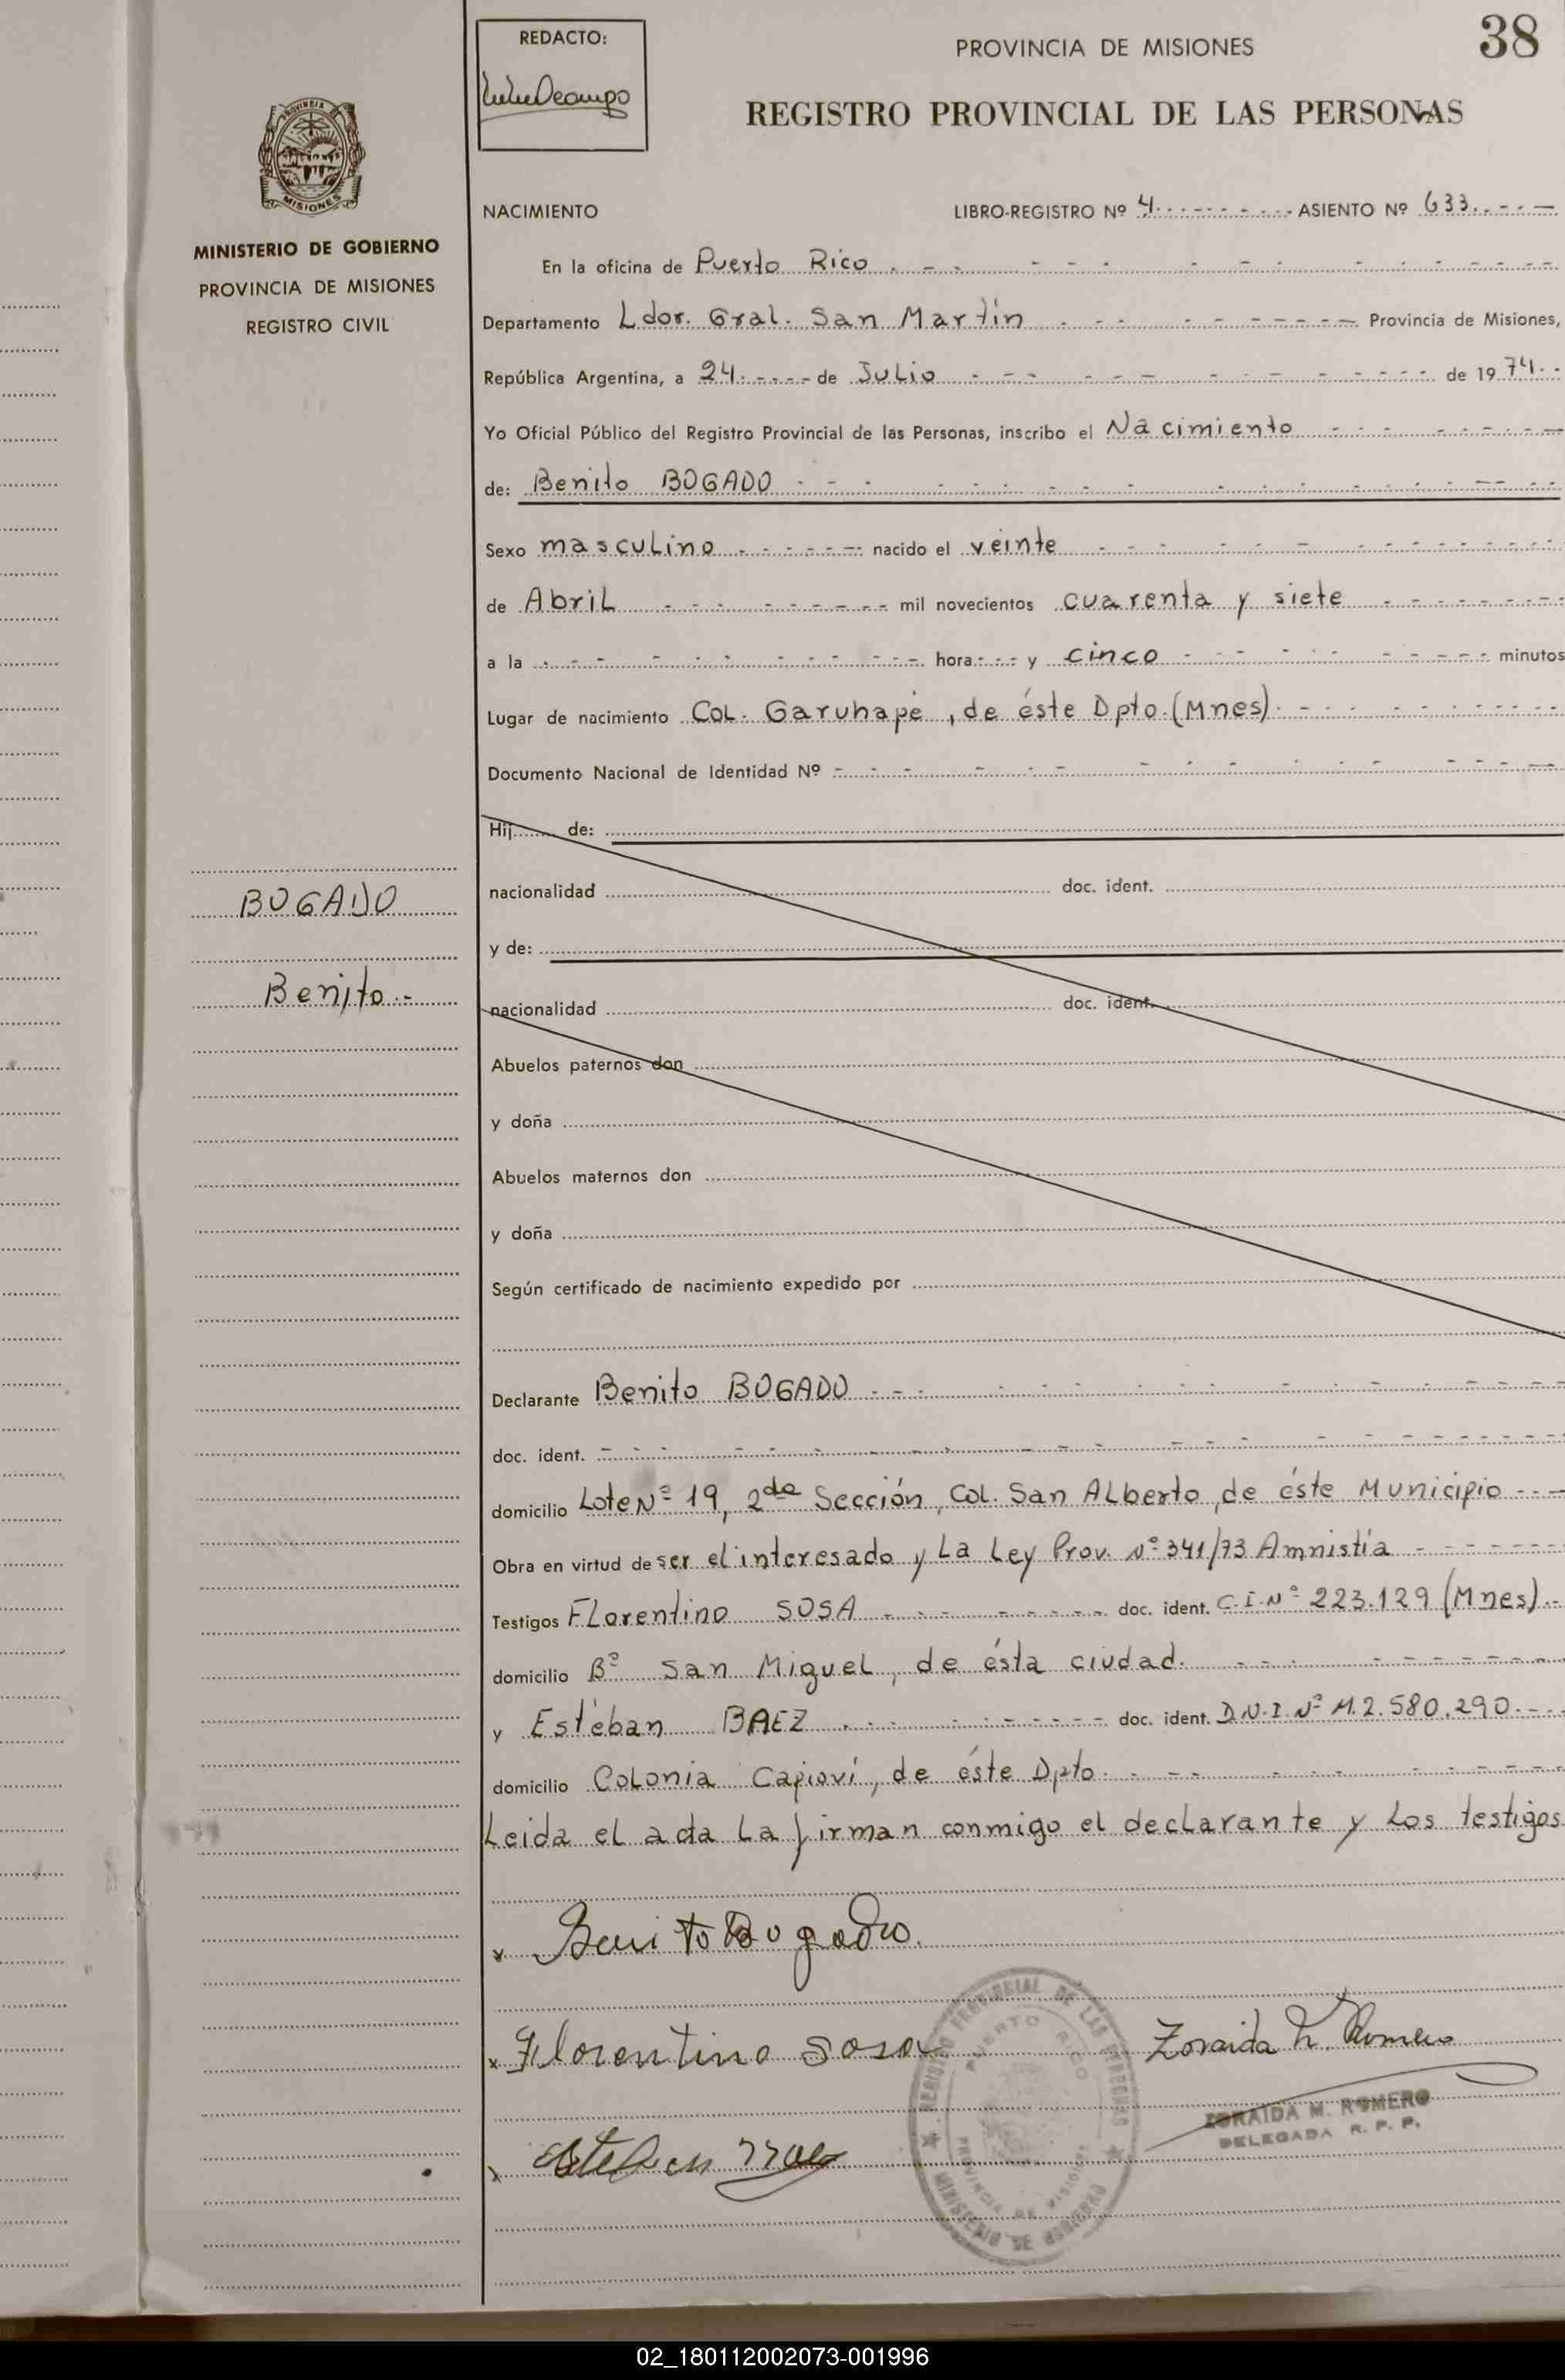 REDACTO:
PROVINCIA DE MISIONES
38
REGISTRO PROVINCIAL DE LAS PERSONAS
PROVINCIA
MISIONES
MINISTERIO DE GOBIERNO
PROVINCIA DE MISIONES
REGISTRO CIVIL
BOGADO
Benito.-
NACIMIENTO LIBRO-REGISTRO Nº 4 ASIENTO Nº 633
En la oficina de Puerto Rico
Departamento Ldor. Gral. San Martín Provincia de Misiones,
República Argentina, a 24 de Julio de 1974
Yo Oficial Público del Registro Provincial de las Personas, inscribo el Nacimiento
de: Benito BOGADO
Sexo masculino nacido el veinte
de Abril mil novecientos cuarenta y siete
a la hora y cinco minutos
Lugar de nacimiento Col. Garuhapé, de éste Dpto. (Mnes)
Documento Nacional de Identidad Nº
Hij de:
nacionalidad doc. ident.
y de:
nacionalidad doc. ident.
Abuelos paternos don
y doña
Abuelos maternos don
y doña
Según certificado de nacimiento expedido por
Declarante Benito BOGADO
doc. ident.
domicilio Lote Nº 19, 2da Sección, Col. San Alberto, de éste Municipio
Obra en virtud de ser el interesado y La Ley Prov. Nº 341/73 Amnistía
Testigos Florentino SOSA doc. ident. C.I. Nº 223.129 (Mnes)
domicilio Bº San Miguel, de ésta ciudad.
y Estéban BAEZ doc. ident. D.N.I. Nº M.2.580.290
domicilio Colonia Capioví, de éste Dpto.
Leida el acta La firman conmigo el declarante y Los testigos
x Benito Bogado.
x Florentino Sosa
Zoraida M. Romero
ZORAIDA M. ROMERO
DELEGADA R. P. P.
x Esteban
REGISTRO PROVINCIAL DE LAS PERSONAS
PUERTO RICO
PROVINCIA DE MISIONES
MINISTERIO DE GOBIERNO
02_180112002073-001996